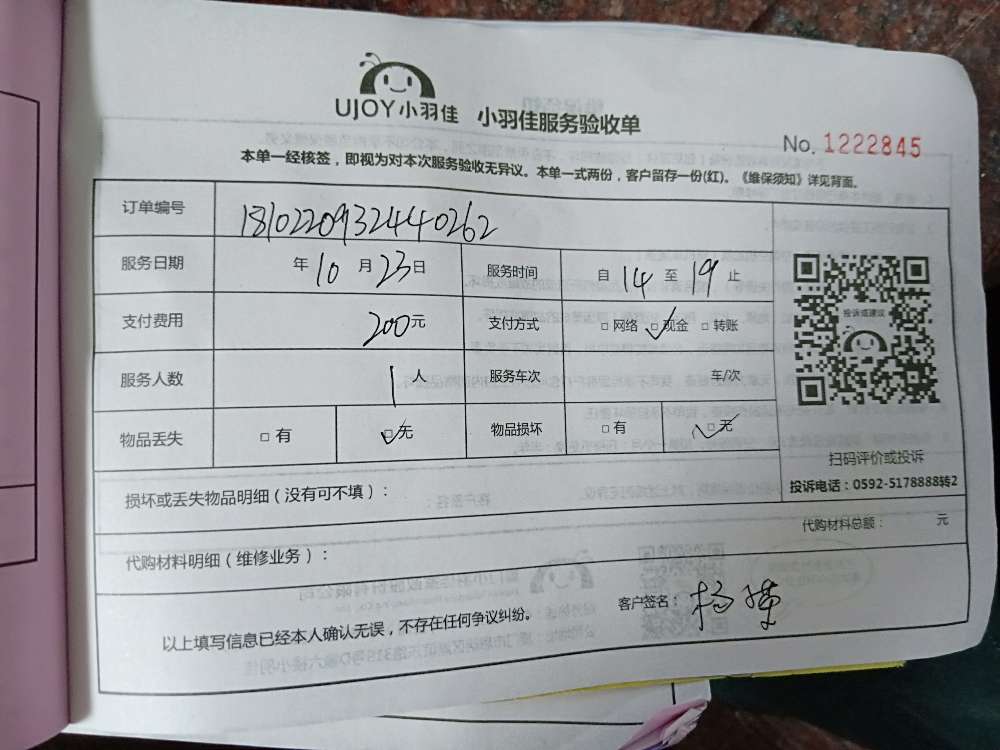 UJOY小羽佳 小羽佳服务验收单
No. 1222845
本单一经核签，即视为对本次服务验收无异议。本单一式两份，客户留存一份(红)。《维保须知》详见背面。
订单编号 18102209324440262
服务日期 年 10 月 23 日 服务时间 自 14 至 19 止
支付费用 200 元 支付方式 □ 网络 □ 现金 □ 转账
投诉或建议
服务人数 1 人 服务车次 车/次
物品丢失 □ 有 □ 无 物品损坏 □ 有 □ 无
扫码评价或投诉
投诉电话：0592-5178888转2
损坏或丢失物品明细（没有可不填）：
代购材料总额： 元
代购材料明细（维修业务）：
以上填写信息已经本人确认无误，不存在任何争议纠纷。
客户签名： 杨